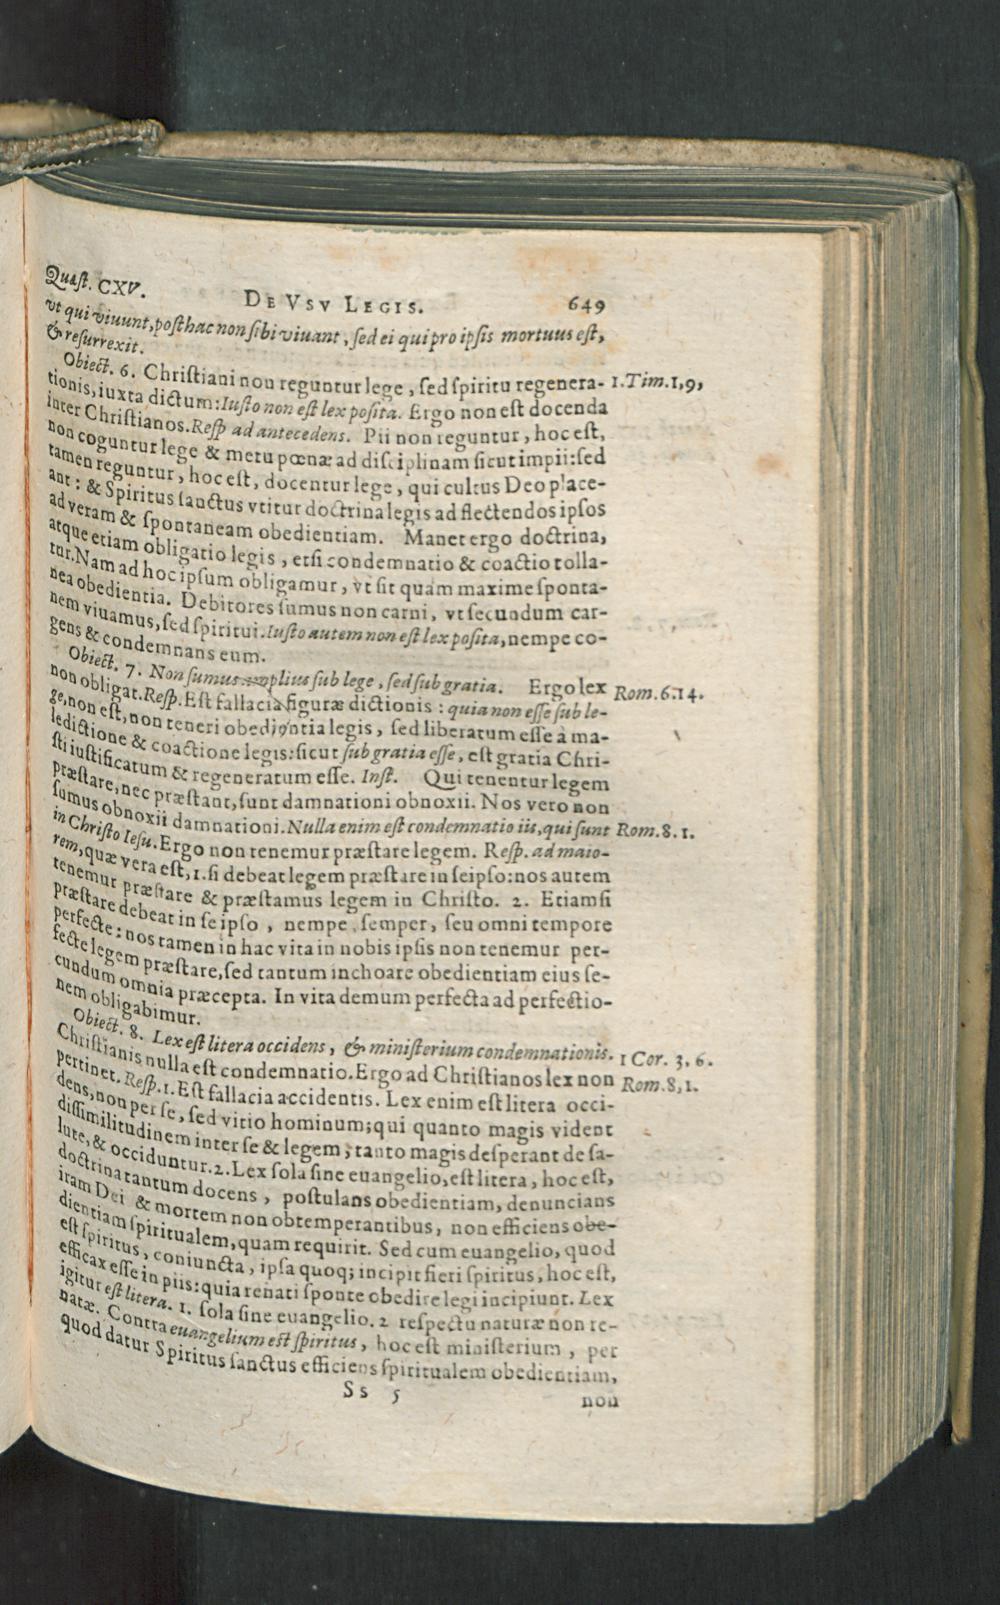 Quæst. CXV. DE VSV LEGIS. 649
vt qui viuunt, posthac non sibi viuant, sed ei qui pro ipsis mortuus est,
& resurrexit.
Obiect. 6. Christiani non reguntur lege, sed spiritu regenera- 1. Tim. 1, 9,
tionis, iuxta dictum: Iusto non est lex posita. Ergo non est docenda
inter Christianos. Resp ad antecedens. Pii non reguntur, hoc est,
non coguntur lege & metu pœnæ ad disciplinam sicut impii: sed
tamen reguntur, hoc est, docentur lege, qui cultus Deo place-
ant: & Spiritus sanctus vtitur doctrina legis ad flectendos ipsos
ad veram & spontaneam obedientiam. Manet ergo doctrina,
atque etiam obligatio legis, etsi condemnatio & coactio tolla-
tur. Nam ad hoc ipsum obligamur, vt sit quàm maxime sponta-
nea obedientia. Debitores sumus non carni, vt secundum car-
nem viuamus, sed spiritui. Iusto autem non est lex posita, nempe co-
gens & condemnans eum.
Obiect. 7. Non sumus amplius sub lege, sed sub gratia. Ergo lex Rom. 6. 14.
non obligat. Resp. Est fallacia figuræ dictionis: quia non esse sub le-
ge, non est, non teneri obedientia legis, sed liberatum esse à ma-
ledictione & coactione legis: sicut sub gratia esse, est gratia Chri-
sti iustificatum & regeneratum esse. Inst. Qui tenentur legem
præstare, nec præstant, sunt damnationi obnoxii. Nos vero non
sumus obnoxii damnationi. Nulla enim est condemnatio iis, qui sunt Rom. 8. 1.
in Christo Iesu. Ergo non tenemur præstare legem. Resp. ad maio-
rem, quæ vera est, 1. si debeat legem præstare in seipso: nos autem
tenemur præstare & præstamus legem in Christo. 2. Etiamsi
præstare debeat in se ipso, nempe semper, seu omni tempore
perfecte: nos tamen in hac vita in nobis ipsis non tenemur per-
fecte legem præstare, sed tantum inchoare obedientiam eius se-
cundum omnia præcepta. In vita demum perfecta ad perfectio-
nem obligabimur.
Obiect. 8. Lex est litera occidens, & ministerium condemnationis. 1 Cor. 3, 6.
Christianis nulla est condemnatio. Ergo ad Christianos lex non Rom. 8, 1.
pertinet. Resp. 1. Est fallacia accidentis. Lex enim est litera occi-
dens, non per se, sed vitio hominum; qui quanto magis vident
dissimilitudinem inter se & legem; tanto magis desperant de sa-
lute, & occiduntur. 2. Lex sola sine euangelio, est litera, hoc est,
doctrina tantum docens, postulans obedientiam, denuncians
iram Dei & mortem non obtemperantibus, non efficiens obe-
dientiam spiritualem, quam requirit. Sed cum euangelio, quod
est spiritus, coniuncta, ipsa quoq; incipit fieri spiritus, hoc est,
efficax esse in piis: quia renati sponte obedire legi incipiunt. Lex
igitur est litera. 1. sola sine euangelio. 2 respectu naturæ non re-
natæ. Contra euangelium est spiritus, hoc est ministerium, per
quod datur Spiritus sanctus efficiens spiritualem obedientiam,
Ss 5 non